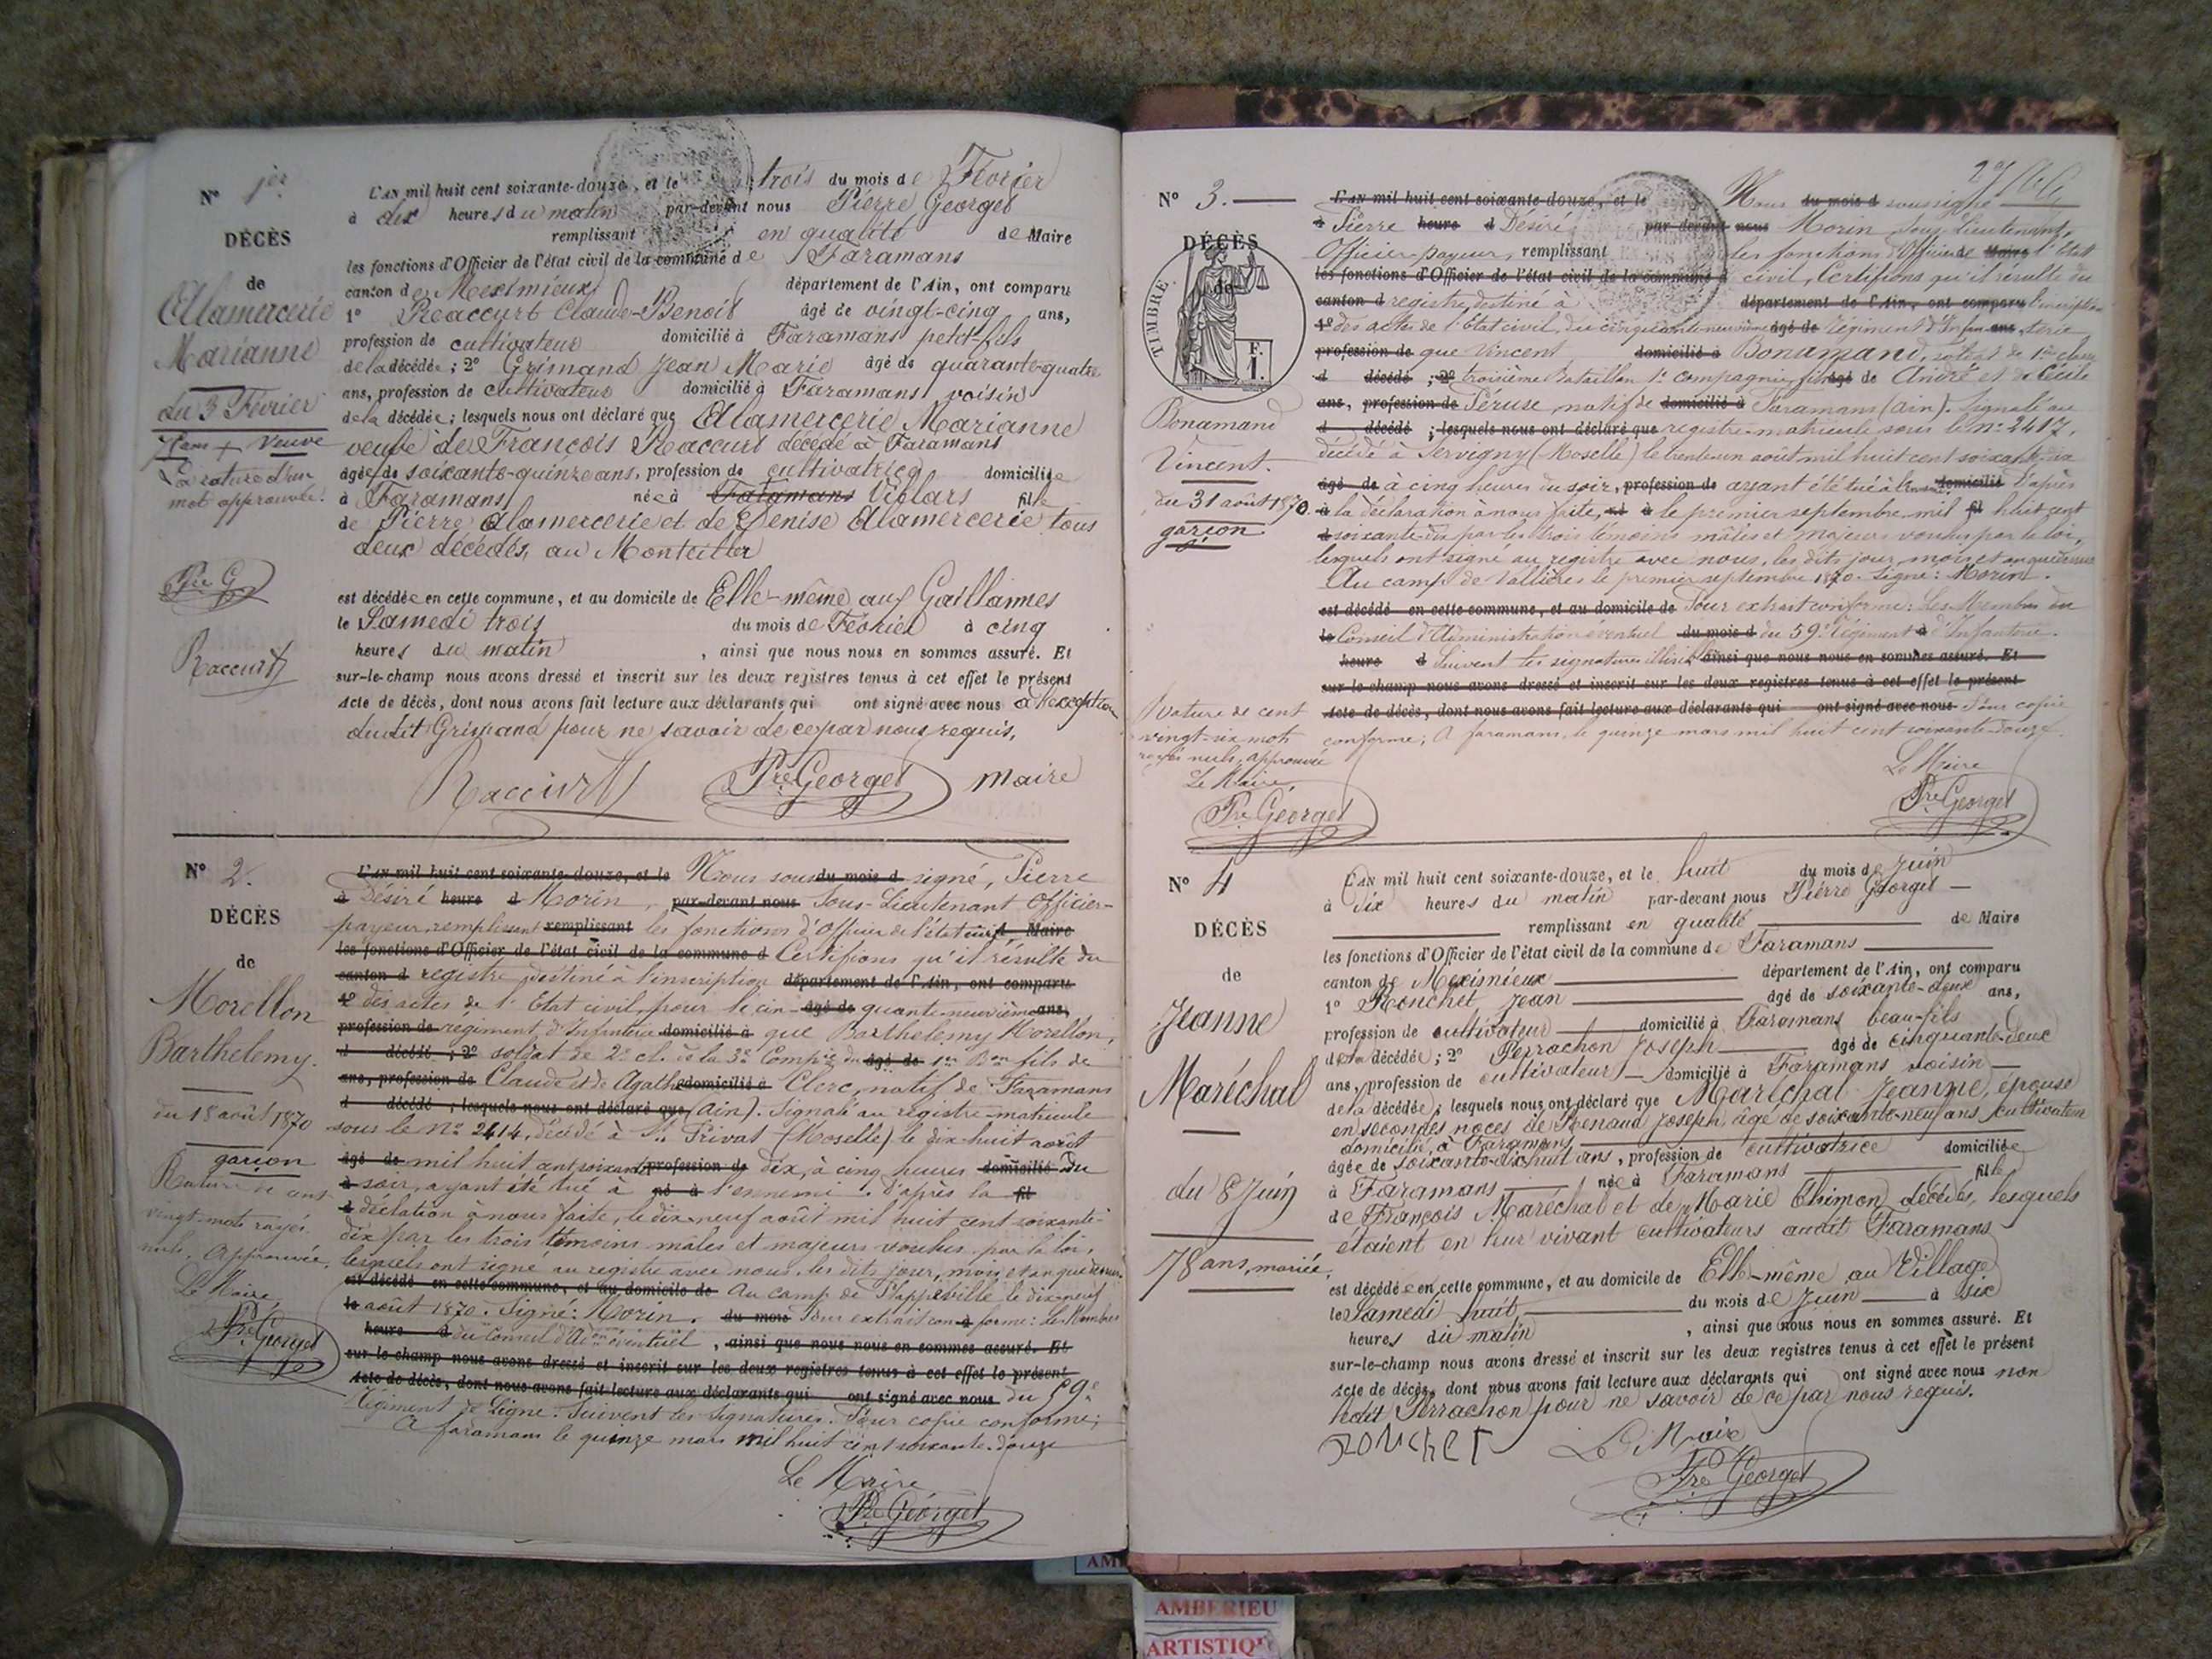 N° 1er
DÉCÈS
de
Allamercerie
Marianne
du 3 Février
75 ans + Veuve
La rature d'un
mot approuvée.
Pre G
Raccurt
L'AN mil huit cent soixante-douze, et le trois du mois de Février
à dix heures du matin par-devant nous Pierre Georget
remplissant en qualité de Maire
les fonctions d'Officier de l'état civil de la commune de Faramans
canton de Meximieux département de l'Ain, ont comparu
1° Reaccurt Claude-Benoit âgé de vingt-cinq ans,
profession de cultivateur domicilié à Faramans petit-fils
de la décédée ; 2° Grimand Jean Marie âgé de quarante-quatre
ans, profession de cultivateur domicilié à Faramans, voisin
de la décédée ; lesquels nous ont déclaré que Allamercerie Marianne
veuve de François Reaccurt décédé à Faramans
âgée de soixante-quinze ans, profession de cultivatrice domiciliée
à Faramans née à Faramans Villars fille
de Pierre Alamercerie et de Denise Alamercerie tous
deux décédés, au Montellier
est décédée en cette commune, et au domicile de Elle-même aux Gaillannes
le Samedi trois du mois de Février à cinq
heures du matin , ainsi que nous nous en sommes assuré. Et
sur-le-champ nous avons dressé et inscrit sur les deux registres tenus à cet effet le présent
Acte de décès, dont nous avons fait lecture aux déclarants qui ont signé avec nous à l'exception
dudit Grimand pour ne savoir de ce par nous requis,
Raccurt Pre Georget maire
N° 2.
DÉCÈS
de
Morellon
Barthelemy.
du 18 août 1870
garçon
Rature de cent
vingt mots rayés
nuls. Approuvée,
Le Maire
Pre Georget
L'AN mil huit cent soixante-douze, et le Nous sous du mois d signé, Pierre
à Désiré heure d Morin, par-devant nous Sous-Lieutenant Officier-
payeur, remplissant remplissant les fonctions d'officier de l'état civil Maire
les fonctions d'Officier de l'état civil de la commune d Certifions qu'il résulte du
canton d registre destiné à l'inscription département de l'Ain, ont comparu
1° des actes de l'Etat civil pour le cin- âgé de quante-neuvième ans,
profession de régiment d'Infanterie domicilié à que Barthelemy Morellon,
d décédé ; 2° soldat de 2e cl. de la 3e Compie du âgé de 1er Bon fils de
ans, profession de Claude et de Agathe domicilié à Clerc, natif de Faramans
d décédé ; lesquels nous ont déclaré que (Ain). Signalé au registre-matricule
sous le No 2414, décédé à St Privat (Moselle) le dix-huit août
âgé de mil huit cent soixante profession de dix, à cinq heures domicilié du
à soir, ayant été tué à né à l'ennemi. d'après la fil
d déclation à nous faite, le dix-neuf août mil huit cent soixante-
dix par les trois témoins mâles et majeurs voulus par la loi,
lesquels ont signé au registre avec nous, les dits jour, mois et an que dessus.
est décédé en cette commune, et au domicile de Au camp de Plappeville le dix-neuf
le août 1870. Signé: Morin. du mois Pour extrait con à forme: Les Membres
heure d du Conseil d'Adon éventuel , ainsi que nous nous en sommes assuré. Et
sur-le-champ nous avons dressé et inscrit sur les deux registres tenus à cet effet le présent
Acte de décès, dont nous avons fait lecture aux déclarants qui ont signé avec nous du 59e
Régiment de Ligne. Suivent les signatures. Pour copie conforme;
A faramans le quinze mars mil huit cent soixante-douze
Le Maire
Pre Georget
N° 3.
DÉCÈS
de
TIMBRE
F.
1.
Bonamand
Vincent.
du 31 août 1870.
garçon
Rature de cent
vingt-six mots
rayés nuls, approuvée
Le Maire
Pre Georget
L'AN mil huit cent soixante-douze, et le Nous du mois d soussigné
à Pierre heure d Désiré par-devant nous Morin, Sous-Lieutenant,
Officier-payeur, remplissant les fonctions d'Officier de Maire l'Etat
les fonctions d'Officier de l'état civil de la commune d civil, Certifions qu'il résulte du
canton d registre destiné à département de l'Ain, ont comparu l'inscription
1° des actes de l'Etat civil, du cinquante-neuvième âgé de régiment d'Infan ans terie
profession de que Vincent domicilié à Bonamand, soldat de 1ère classe
d décédé ; 2° troisième Bataillon 1e compagnie, fils âgé de André et de Cécile
ans, profession de Péruse, natif de domicilié à Faramans (Ain). Signalé au
d décédé ; lesquels nous ont déclaré que registre-matricule sous le No 2417,
décédé à Servigny (Moselle) le trente-un août mil huit cent soixante-dix
âgé de à cinq heures du soir, profession de ayant été tué à l'ennemi domicilié d'après
à la déclaration à nous faite, né à le premier septembre mil fil huit cent
d soixante-dix par les trois témoins mâles et majeurs voulus par la loi,
lesquels ont signé au registre avec nous, les dits jour, mois et an que dessus
Au camp de Vallières le premier septembre 1870. Signé: Morin.
est décédé en cette commune, et au domicile de Pour extrait conforme: Les Membres du
le Conseil d'Administration éventuel du mois d du 59e Régiment à d'Infanterie.
heure d Suivent les signatures ainsi que nous nous en sommes assuré. Et
sur-le-champ nous avons dressé et inscrit sur les deux registres tenus à cet effet le présent
Acte de décès, dont nous avons fait lecture aux déclarants qui ont signé avec nous Pour copie
conforme; A faramans, le quinze mars mil huit cent soixante-douze.
Le Maire
Pre Georget
N° 4
DÉCÈS
de
Jeanne
Maréchal
du 8 Juin
78 ans, mariée
L'AN mil huit cent soixante-douze, et le huit du mois de Juin
à dix heures du matin par-devant nous Pierre Georget
remplissant en qualité de Maire
les fonctions d'Officier de l'état civil de la commune de Faramans
canton de Meximieux département de l'Ain, ont comparu
1° Ronchet Jean âgé de soixante-deux ans,
profession de cultivateur domicilié à Faramans beau-fils
de la décédée ; 2° Perrachon Joseph âgé de cinquante-deux
ans, profession de cultivateur domicilié à Faramans voisin
de la décédée ; lesquels nous ont déclaré que Maréchal Jeanne, épouse
en secondes noces de Renaud Joseph, âgé de soixante-neuf ans, cultivateur
domicilié, à Faramans
âgée de soixante-dix-huit ans, profession de cultivatrice domiciliée
à Faramans née à Faramans fille
de François Maréchal et de Marie Thimon, décédés, lesquels
étaient en leur vivant cultivateurs audit Faramans
est décédée en cette commune, et au domicile de Elle-même au Village
le Samedi huit du mois de Juin à six
heures du matin , ainsi que nous nous en sommes assuré. Et
sur-le-champ nous avons dressé et inscrit sur les deux registres tenus à cet effet le présent
Acte de décès, dont nous avons fait lecture aux déclarants qui ont signé avec nous non
ledit Perrachon pour ne savoir de ce par nous requis.
RONCHET Le Maire
Pre Georget
AMBERIEU
ARTISTIQU